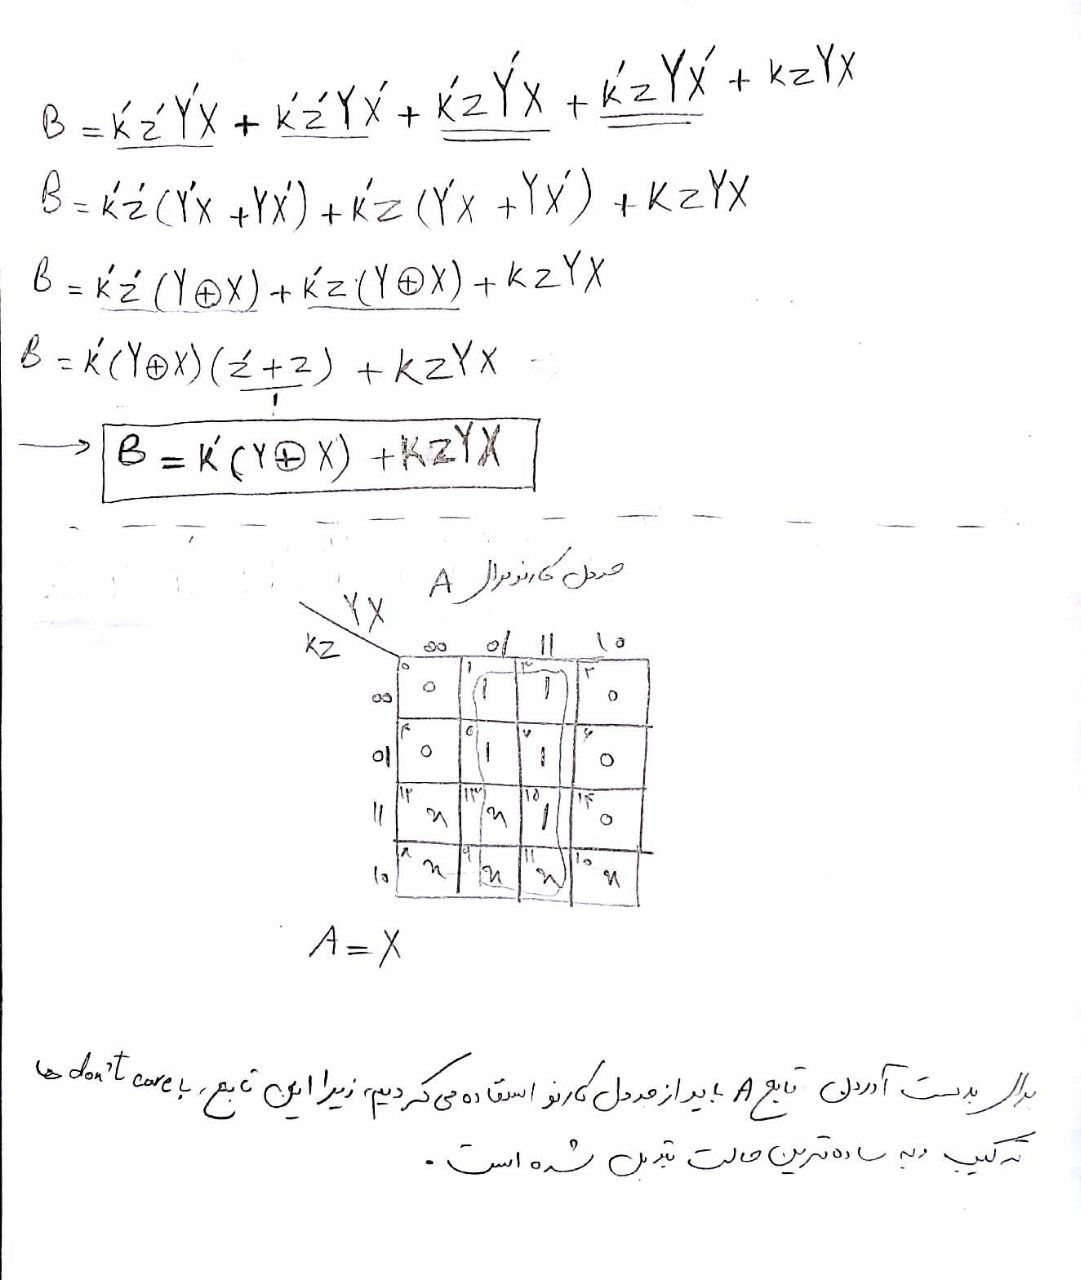 B = K'Z'Y'X + K'Z'YX' + K'ZY'X + K'ZYX' + KZYX
B = K'Z'(Y'X + YX') + K'Z(Y'X + YX') + KZYX
B = K'Z'(Y⊕X) + K'Z(Y⊕X) + KZYX
B = K'(Y⊕X)(Z'+Z) + KZYX
1
→ B = K'(Y⊕X) + KZYX
جدول کارنو برای A
YX
KZ 00 01 11 10
00 ۰ 0 ۱ 1 ۳ 1 ۲ 0
01 ۴ 0 ۵ 1 ۷ 1 ۶ 0
11 ۱۲ x ۱۳ x ۱۵ 1 ۱۴ 0
10 ۸ x ۹ x ۱۱ x ۱۰ x
A = X
برای بدست آوردن تابع A باید از جدول کارنو استفاده می‌کردیم، زیرا این تابع، با don't care ها
ترکیب و به ساده‌ترین حالت تبدیل شده است.